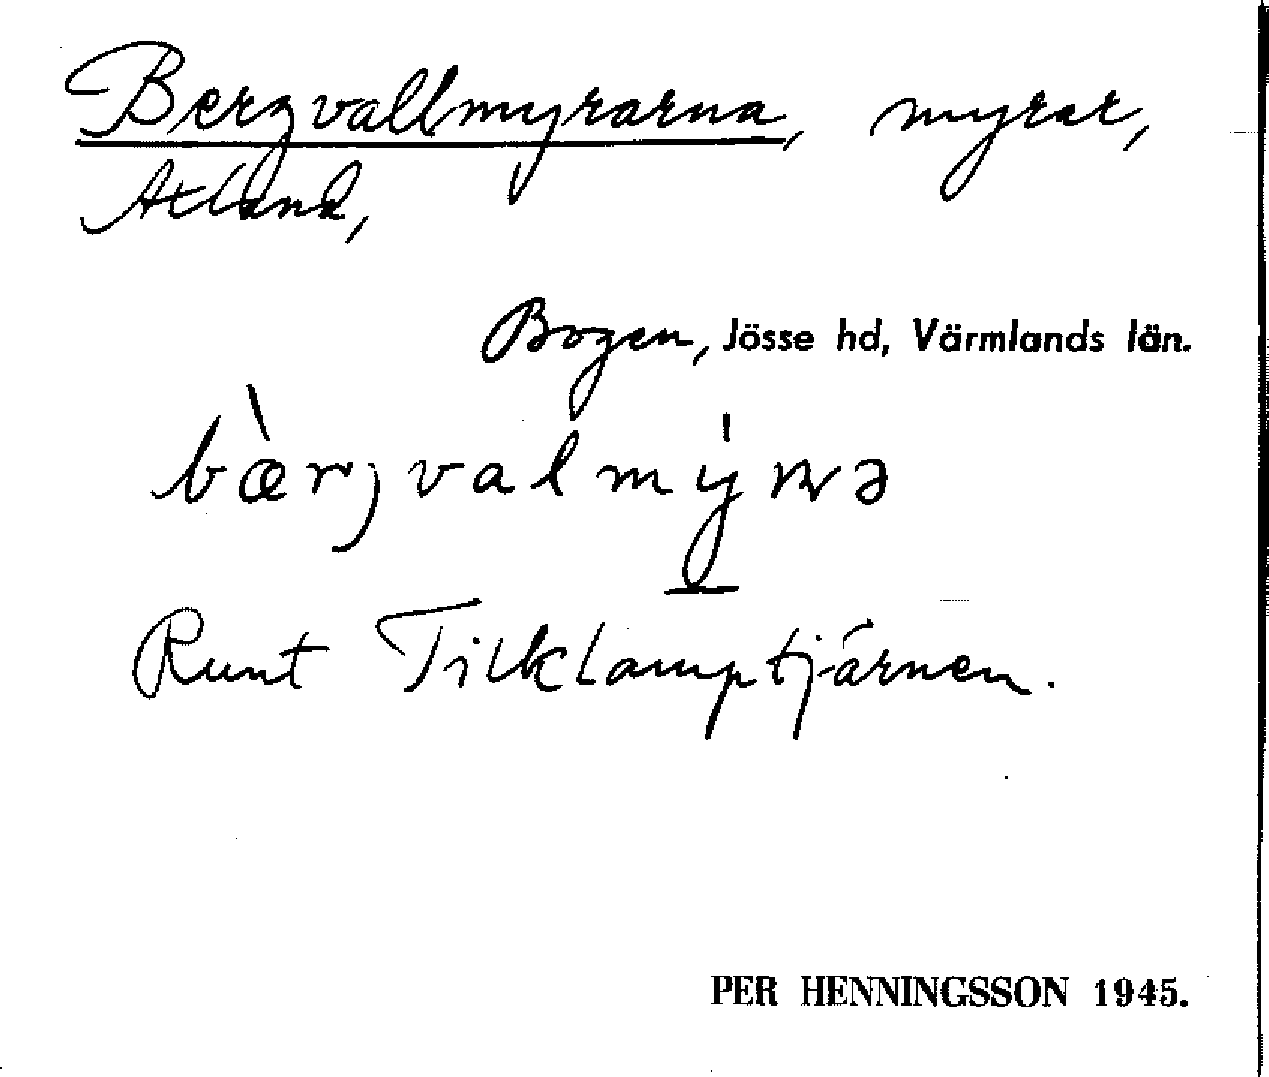 Bergvallmyrarna, myrar,
Atland,
Bogen, Jösse hd, Värmlands län.
Runt Tilklamptjärnen.
PER HENNINGSSON 1945.